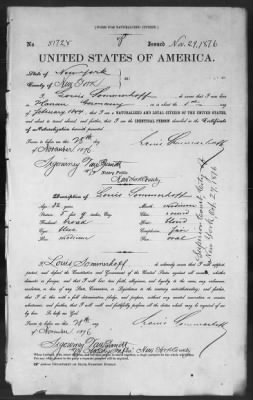 [FORM FOR NATURALIZED CITIZEN.]
No. 51728 Issued Nov. 29, 1876
UNITED STATES OF AMERICA.
State of New York
County of New York
I, Louis Sommerhoff, do swear that I was born
in Hanau Germany on the
of February 1844; that I am a NATURALIZED AND LOYAL CITIZEN OF THE UNITED STATES,
and about to travel abroad; and further, that I am the IDENTICAL PERSON described in the Certificate
of Naturalization herewith presented.
Sworn to before me this 28th
of November 1876
Louis Sommerhoff
Notary Public
New York County
Description of Louis Sommerhoff
Age: 32 years
Mouth: medium
Stature: 5 ft
Chin: round
Forehead: broad
Hair: blond
Eyes: blue
Complexion: fair
Nose: medium
Face: oval
Superior Court City of
New York, Oct 27, 1876
I, Louis Sommerhoff, do solemnly swear that I will support,
protect, and defend the Constitution and Government of the United States against all enemies, whether
domestic or foreign; and that I will bear true faith, allegiance, and loyalty to the same, any ordinance,
resolution, or law of any State, Convention, or Legislature to the contrary notwithstanding; and further,
that I do this with a full determination, pledge, and purpose, without any mental reservation or evasion
whatsoever; and further, that I will well and faithfully perform all the duties which may be required of me
by law. So help me God.
Sworn to before me this 28th day
of November 1876
Louis Sommerhoff
Notary Public New York County